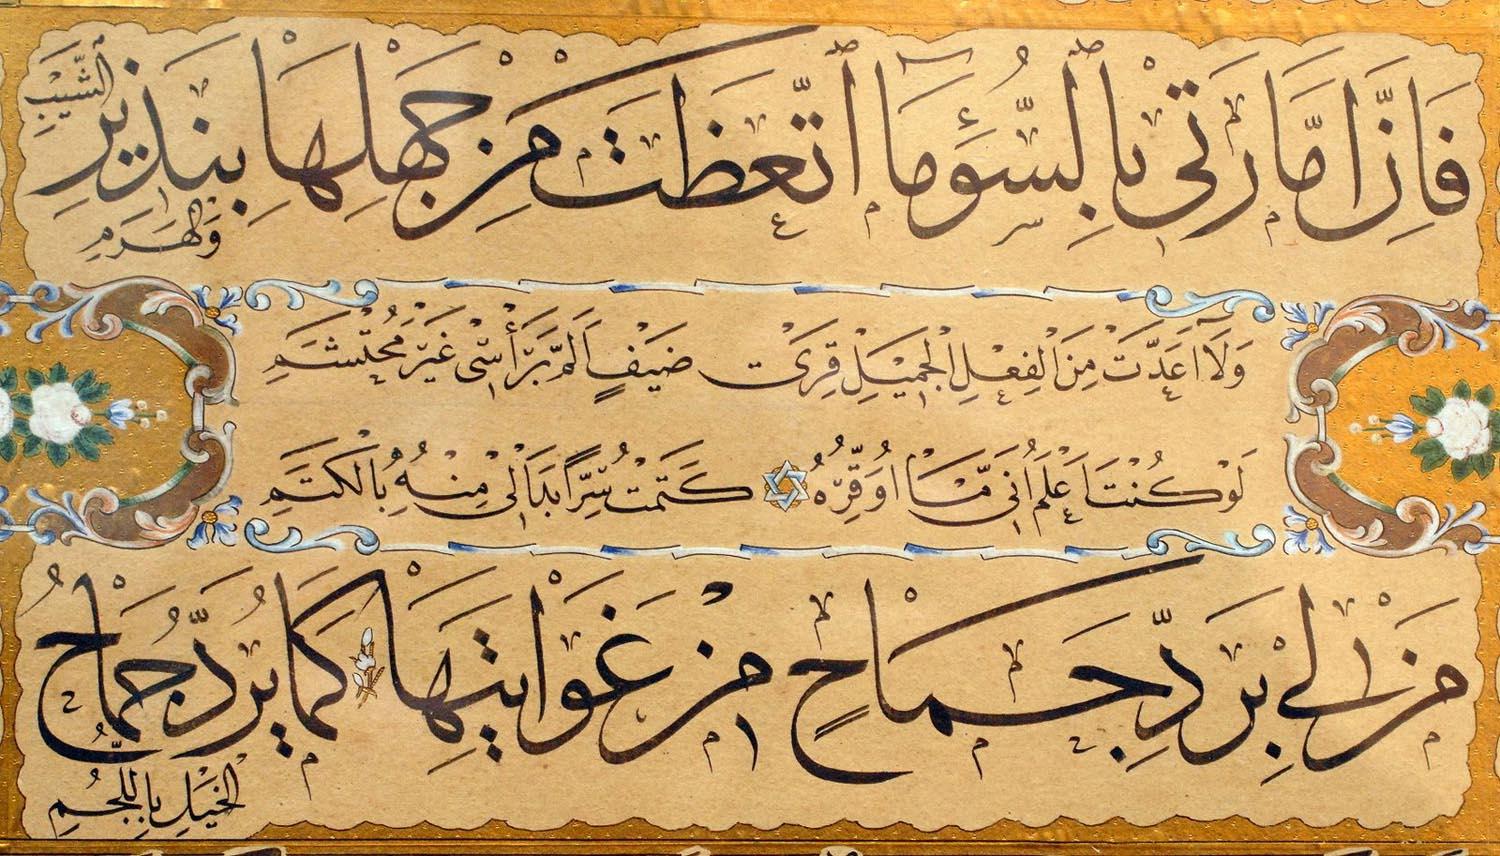 فَاِنَّ اَمَّارَتٖى بِالسُّوءِ مَا اتَّعَظَتْ مِنْ جَهْلِهَا بِنَذٖيرِ الشَّيْبِ وَالْهَرَمِ
وَلَا اَعَدَّتْ مِنَ الْفِعْلِ الْجَمٖيلِ قِرٰى ضَيْفٍ اَلَمَّ بِرَأْسٖى غَيْرَ مُحْتَشَمِ
لَوْ كُنْتُ اَعْلَمُ اَنّٖى مَا اُوَقِّرُهُ كَتَمْتُ سِرًّا بَدَا لٖى مِنْهُ بِالْكَتَمِ
مَنْ لٖى بِرَدِّ جِمَاحٍ مِنْ غَوَايَتِهَا كَمَا يُرَدُّ جِمَاحُ الْخَيْلِ بِاللُّجُمِ